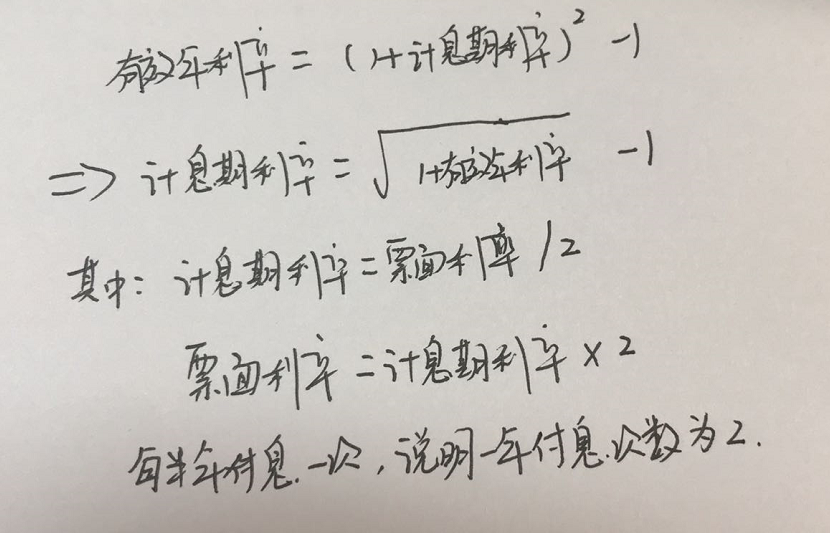 有效年利率 = (1+计息期利率)² -1
=> 计息期利率 = √1+有效年利率 -1
其中: 计息期利率 = 票面利率 /2
票面利率 = 计息期利率 × 2
每半年付息一次, 说明一年付息次数为2.